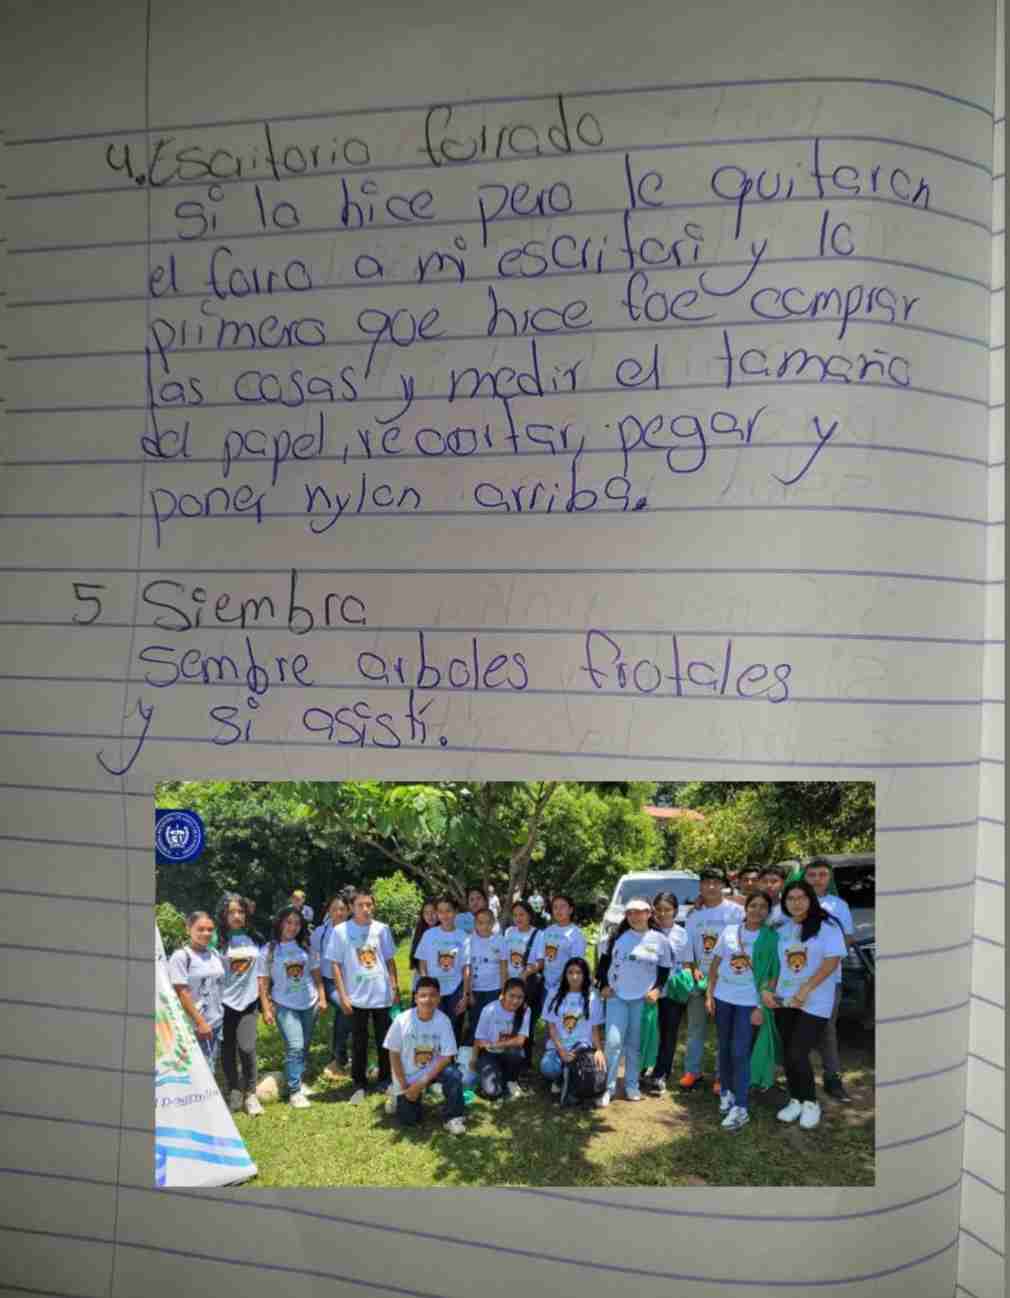 4. Escritorio forrado
si lo hice pero le quitaron
el forro a mi escritori y lo
primero que hice foe comprar
las cosas y medir el tamaño
del papel, recortar, pegar y
poner nylon arriba.
5 Siembra
Sembre arboles frotales
y si asistí.